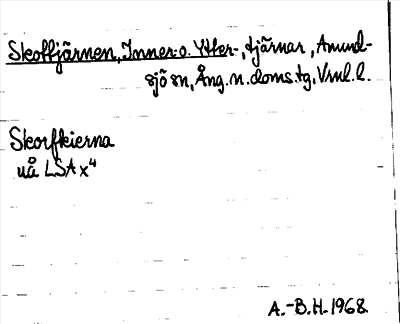 Skottjärnen, Inner- o. Ytter-, tjärnar, Anund-
sjö sn, Ång. n. doms.tg, Vrnl. l.
Skorfkierna
uå LSA x⁴
A.-B.H. 1968